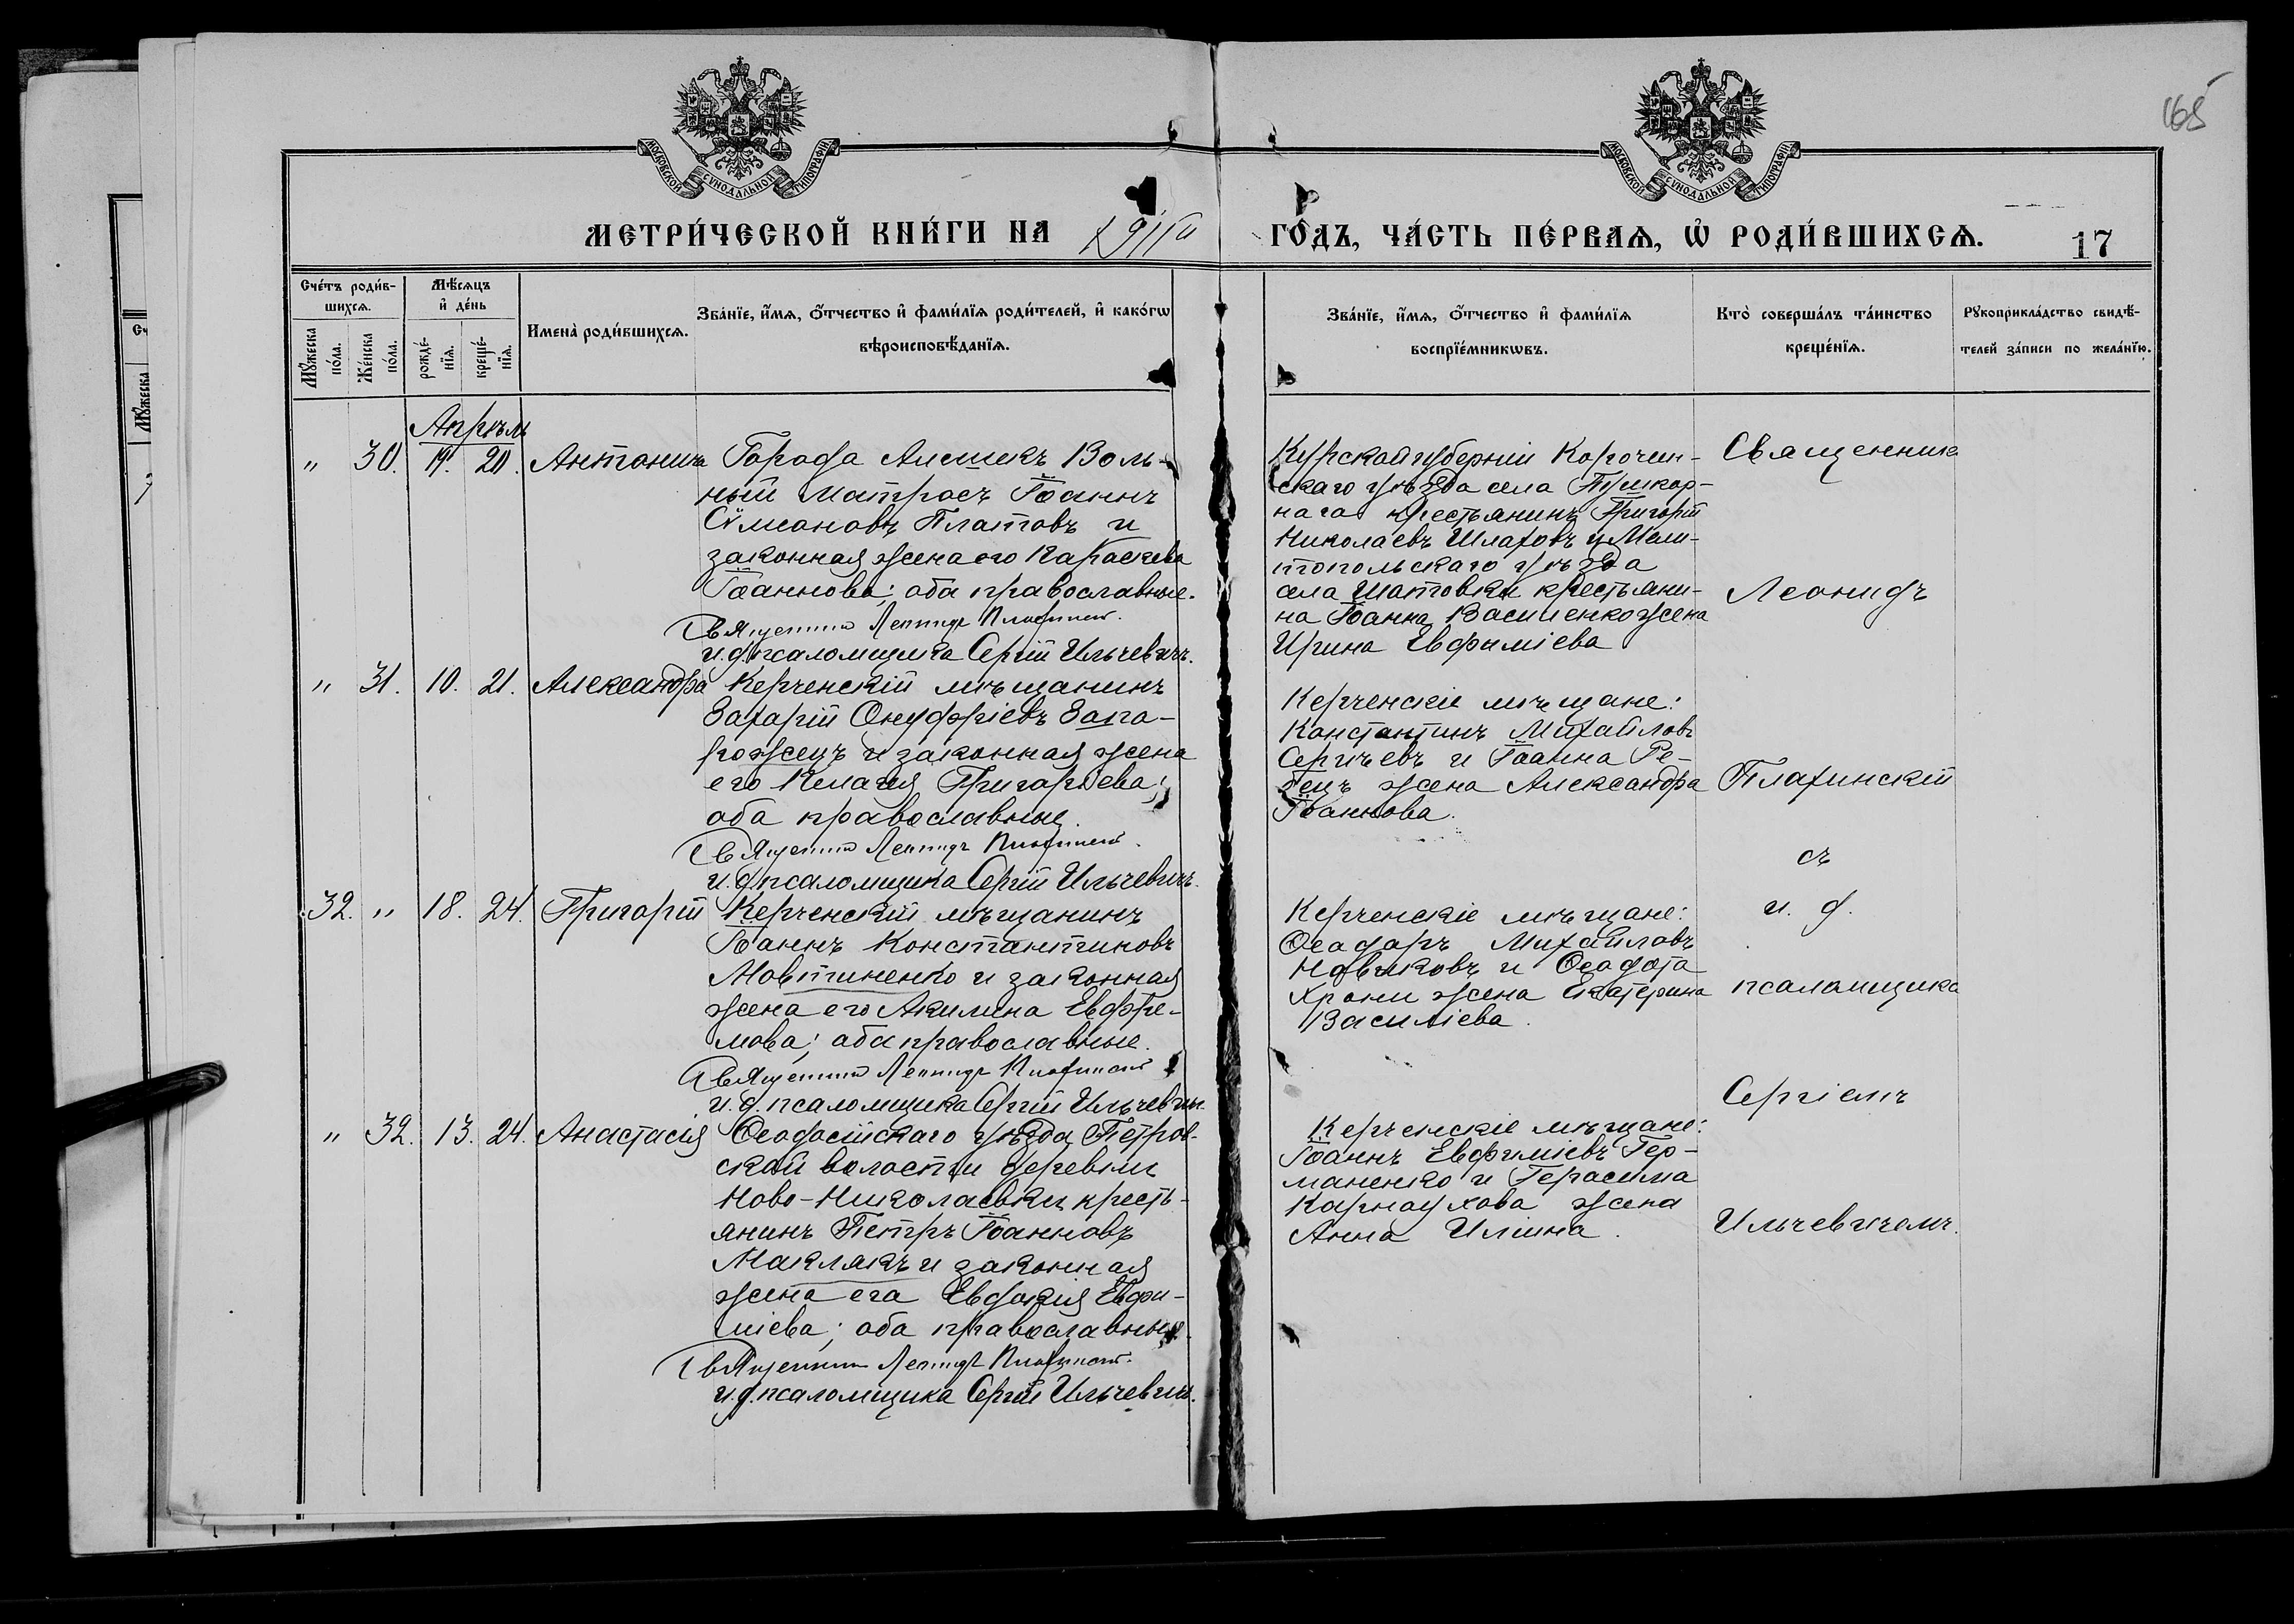 165
МОСКОВСКОЙ СѴНОДАЛЬНОЙ ТИПОГРАФІИ
МОСКОВСКОЙ СѴНОДАЛЬНОЙ ТИПОГРАФІИ
МЕТРИ́ЧЕСКОЙ КНИ́ГИ НА 1911й ГО́ДЪ, ЧА́СТЬ ПЕ́РВАѦ, Ѡ РОДИ́ВШИХСѦ. 17
Сче́тъ роди́в-
шихсѧ.
Мꙋжеска по́ла.
Же́нска по́ла.
Мѣ́сѧцъ
и҆ де́нь
рожде́-
нїѧ.
креще́-
нїѧ.
Имена̀ роди́вшихсѧ.
Зва́нїе, и҆́мѧ, ѻ҆́тчество и҆ фами́лїѧ роди́телей, и҆ како́гѡ
вѣроисповѣ́данїѧ.
Зва́нїе, и҆́мѧ, ѻ҆́тчество и҆ фами́лїѧ
воспрїе́мникѡвъ.
Кто̀ соверша́лъ та́инство
креще́нїѧ.
Рꙋкоприкла́дство свидѣ́-
телей за́писи по жела́нїю.
Апрѣль
„ 30. 19. 20. Антонина
Города Алешекъ Воль-
ный матросъ Іоаннъ
Сѵмеоновъ Платовъ и
законная жена его Параскева
Іоаннова; оба православные.
Священникъ Леонидъ Плахинскій.
и. д. псаломщика Сергій Ильчевичъ.
Курской губерніи Корочан-
скаго уѣзда села Пушкар-
наго крестьянинъ Григорій
Николаевъ Шлаховъ и Мели-
топольскаго уѣзда
села Шатовки крестьяни-
на Іоанна Василенко жена
Ирина Евфиміева
„ 31. 10. 21. Александра
Керченскій мѣщанинъ
Захарій Онуфріевъ Запо-
рожецъ и законная жена
его Пелагея Григоріева;
оба православные.
Священникъ Леонидъ Плахинскій.
и. д. псаломщика Сергій Ильчевичъ.
Керченскіе мѣщане:
Константинъ Михайловъ
Сергѣевъ и Іоанна Ре-
бецъ жена Александра
Іоаннова.
32. „ 18. 24. Григорій
Керченскій мѣщанинъ
Іоаннъ Константиновъ
Мовтиненко и законная
жена его Акилина Евфре-
мова; оба православные.
Священникъ Леонидъ Плахинскій
и. д. псаломщика Сергій Ильчевичъ.
Керченскіе мѣщане:
Ѳеодоръ Михайловъ
Новиковъ и Ѳеодота
Хрони жена Екатерина
Василіева.
„ 32. 13. 24. Анастасія
Ѳеодосійскаго уѣзда Петров-
ской волости деревни
Ново-Николаевки кресть-
янинъ Петръ Іоанновъ
Маклякъ и законная
жена его Евдокія Евфи-
міева; оба православные.
Священникъ Леонидъ Плахинскій.
и. д. псаломщика Сергій Ильчевичъ.
Керченскіе мѣщане:
Іоаннъ Евфиміевъ Гер-
маненко и Герасима
Карнаухова жена
Анна Иліина.
Священникъ
Леонидъ
Плахинскій
съ
и. д.
псаломщика
Сергіемъ
Ильчевичемъ.